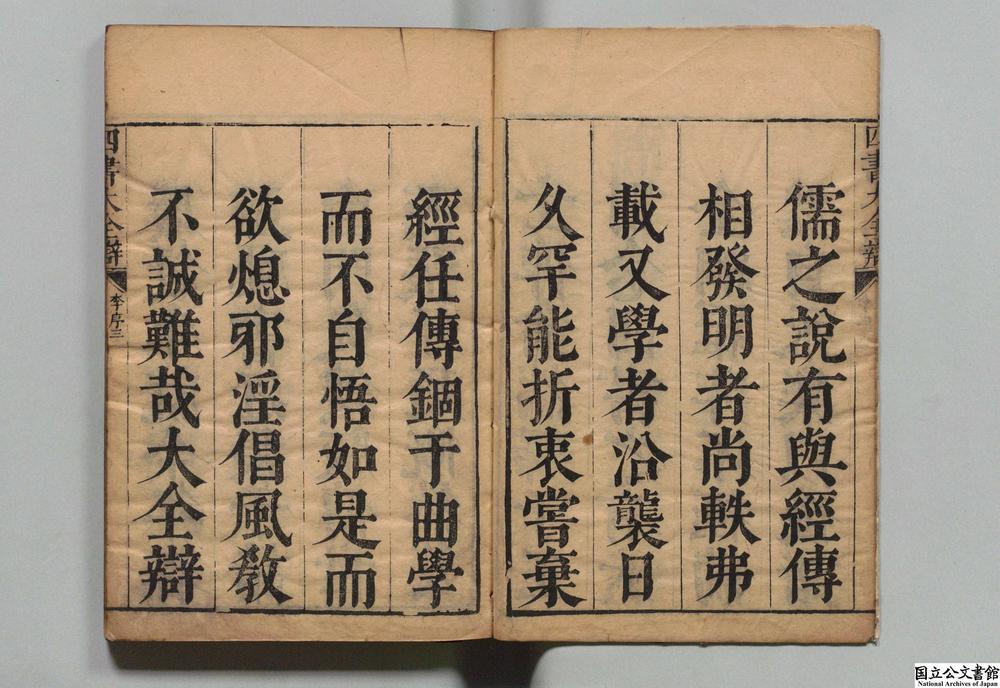 四書大全辯
儒之說有與經傳
相發明者尚軼弗
載又學者沿襲日
久罕能折衷嘗棄
經任傳錮于曲學
而不自悟如是而
欲熄邪淫倡風敎
不誠難哉大全辯
四書大全辯 李序 三
国立公文書館
National Archives of Japan